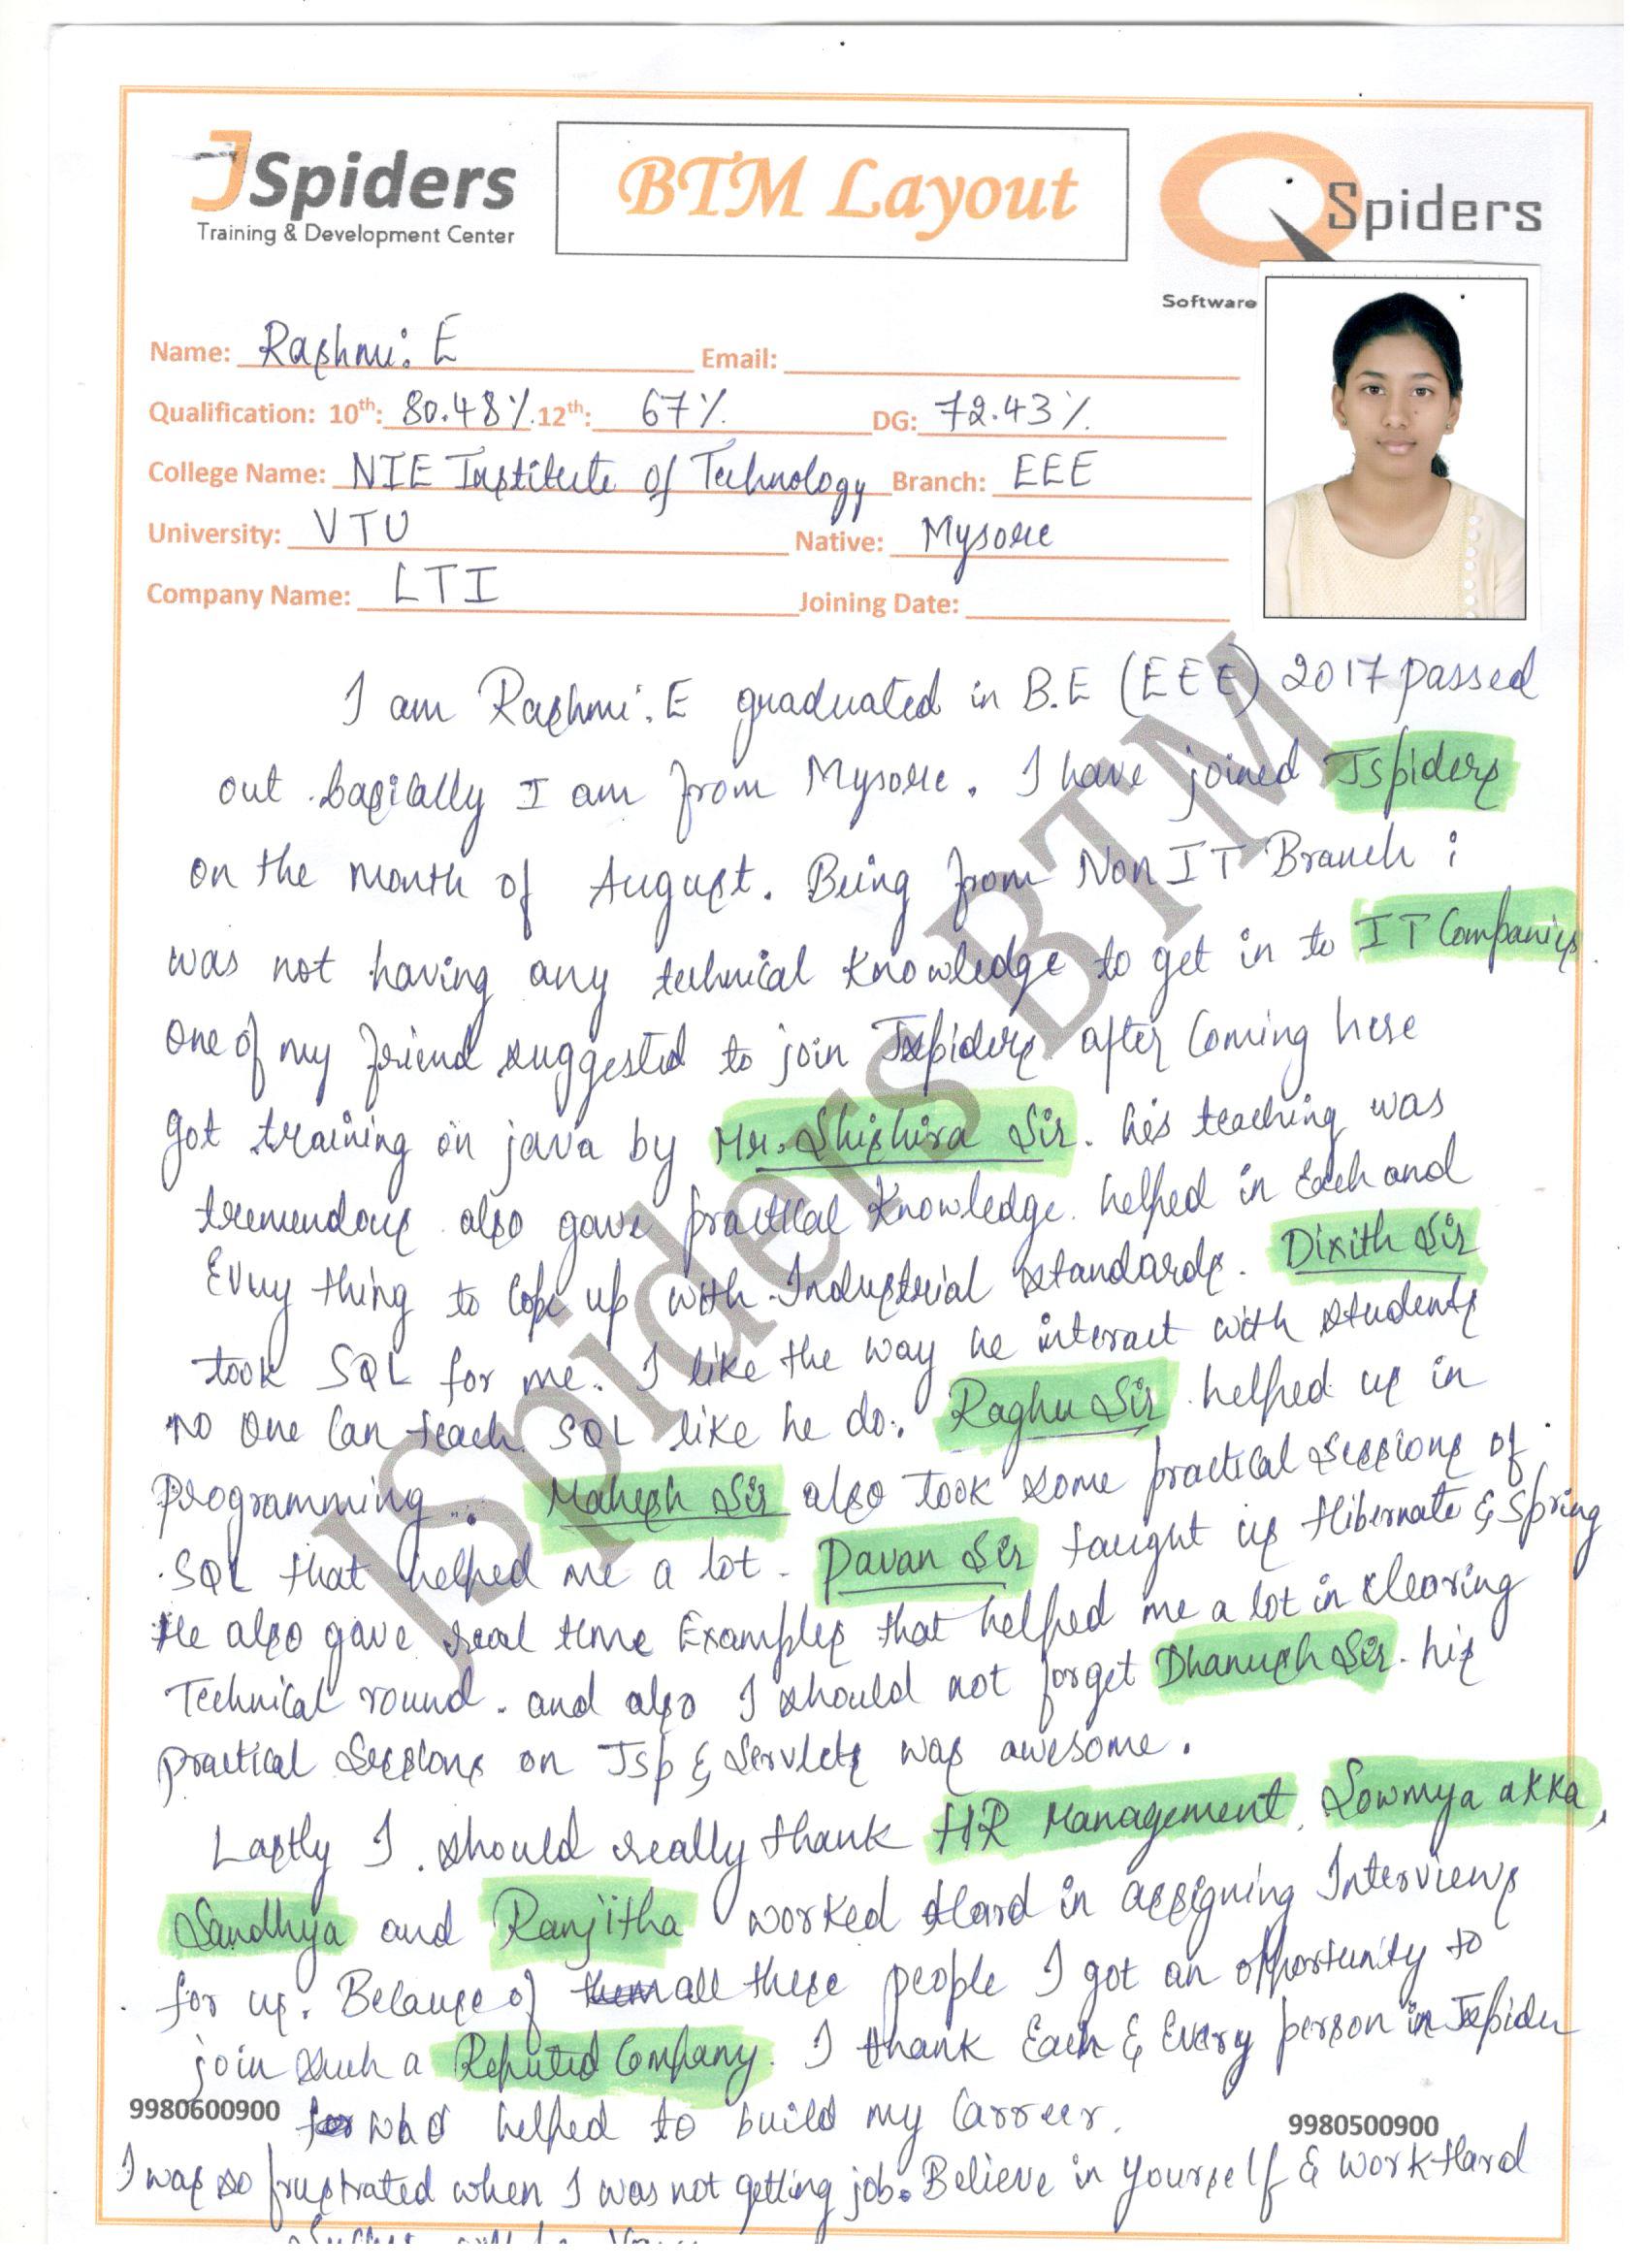 JSpiders
Training & Development Center
BTM Layout
QSpiders
Software
Name: Rashmi. E Email:
Qualification: 10th: 80.48% 12th: 67% DG: 72.43%
College Name: NIE Institute of Technology Branch: EEE
University: VTU Native: Mysore
Company Name: LTI Joining Date:
I am Rashmi. E graduated in B.E (EEE) 2017 passed
out . basically I am from Mysore. I have joined Jspiders
on the month of August. Being from Non IT Branch i
was not having any technical knowledge to get in to IT Companies.
One of my friend suggested to join Jspiders after Coming here
got training on java by Mr. Shishira Sir. his teaching was
tremendous also gave practical knowledge. helped in Each and
Every thing to Cope up with Industrial standards. Dixith Sir
took SQL for me. I like the way he interact with students
No One Can teach SQL like he do. Raghu Sir helped us in
programming. Mahesh Sir also took some practical sessions of
SQL that helped me a lot. Pavan Sir taught us Hibernate & Spring
He also gave real time Examples that helped me a lot in clearing
Technical round. and also I should not forget Dhanush Sir. his
practical Sessions on Jsp & Servlets was awesome.
Lastly I should really thank HR Management, Sowmya akka,
Sandhya and Ranjitha worked Hard in assigning Interviews
for us. Because of all these people I got an opportunity to
join such a Reputed Company. I thank Each & Every person in Jspider
9980600900 who helped to build my Carreer. 9980500900
I was so frustrated when I was not getting job. Believe in Yourself & work Hard
JSpiders BTM